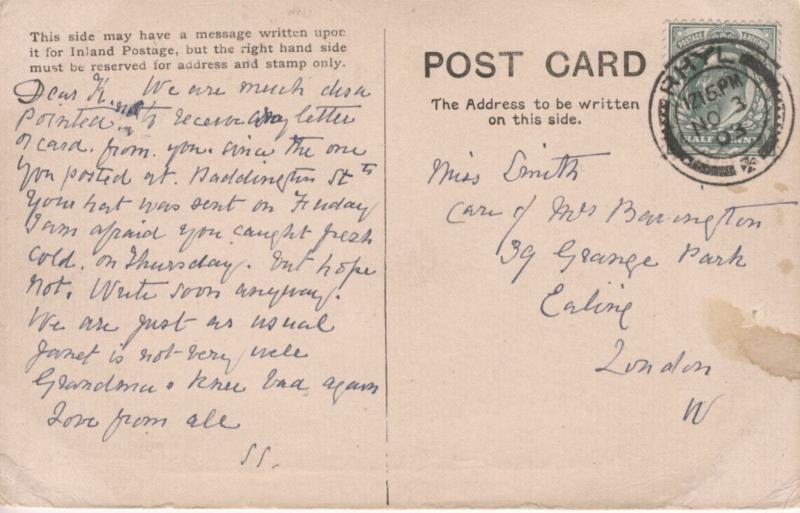 This side may have a message written upon
it for Inland Postage, but the right hand side
must be reserved for address and stamp only.
Dear K. We are much disa
pointed not to receive any letter
or card. from. you. since the one
you posted at. Paddington Stn
Your hat was sent on Friday
I am afraid you caught fresh
cold. on Thursday. but hope
not. Write soon anyway.
We are just as usual
Janet is not very well
Grandma's knee bad again
Love from all
SS.
POST CARD
The Address to be written
on this side.
POSTAGE & REVENUE
HALFPENNY
RHYL
12 15 PM
NO 3
03
Miss Smith
care of Mrs Barrington
39 Grange Park
Ealing
London
W